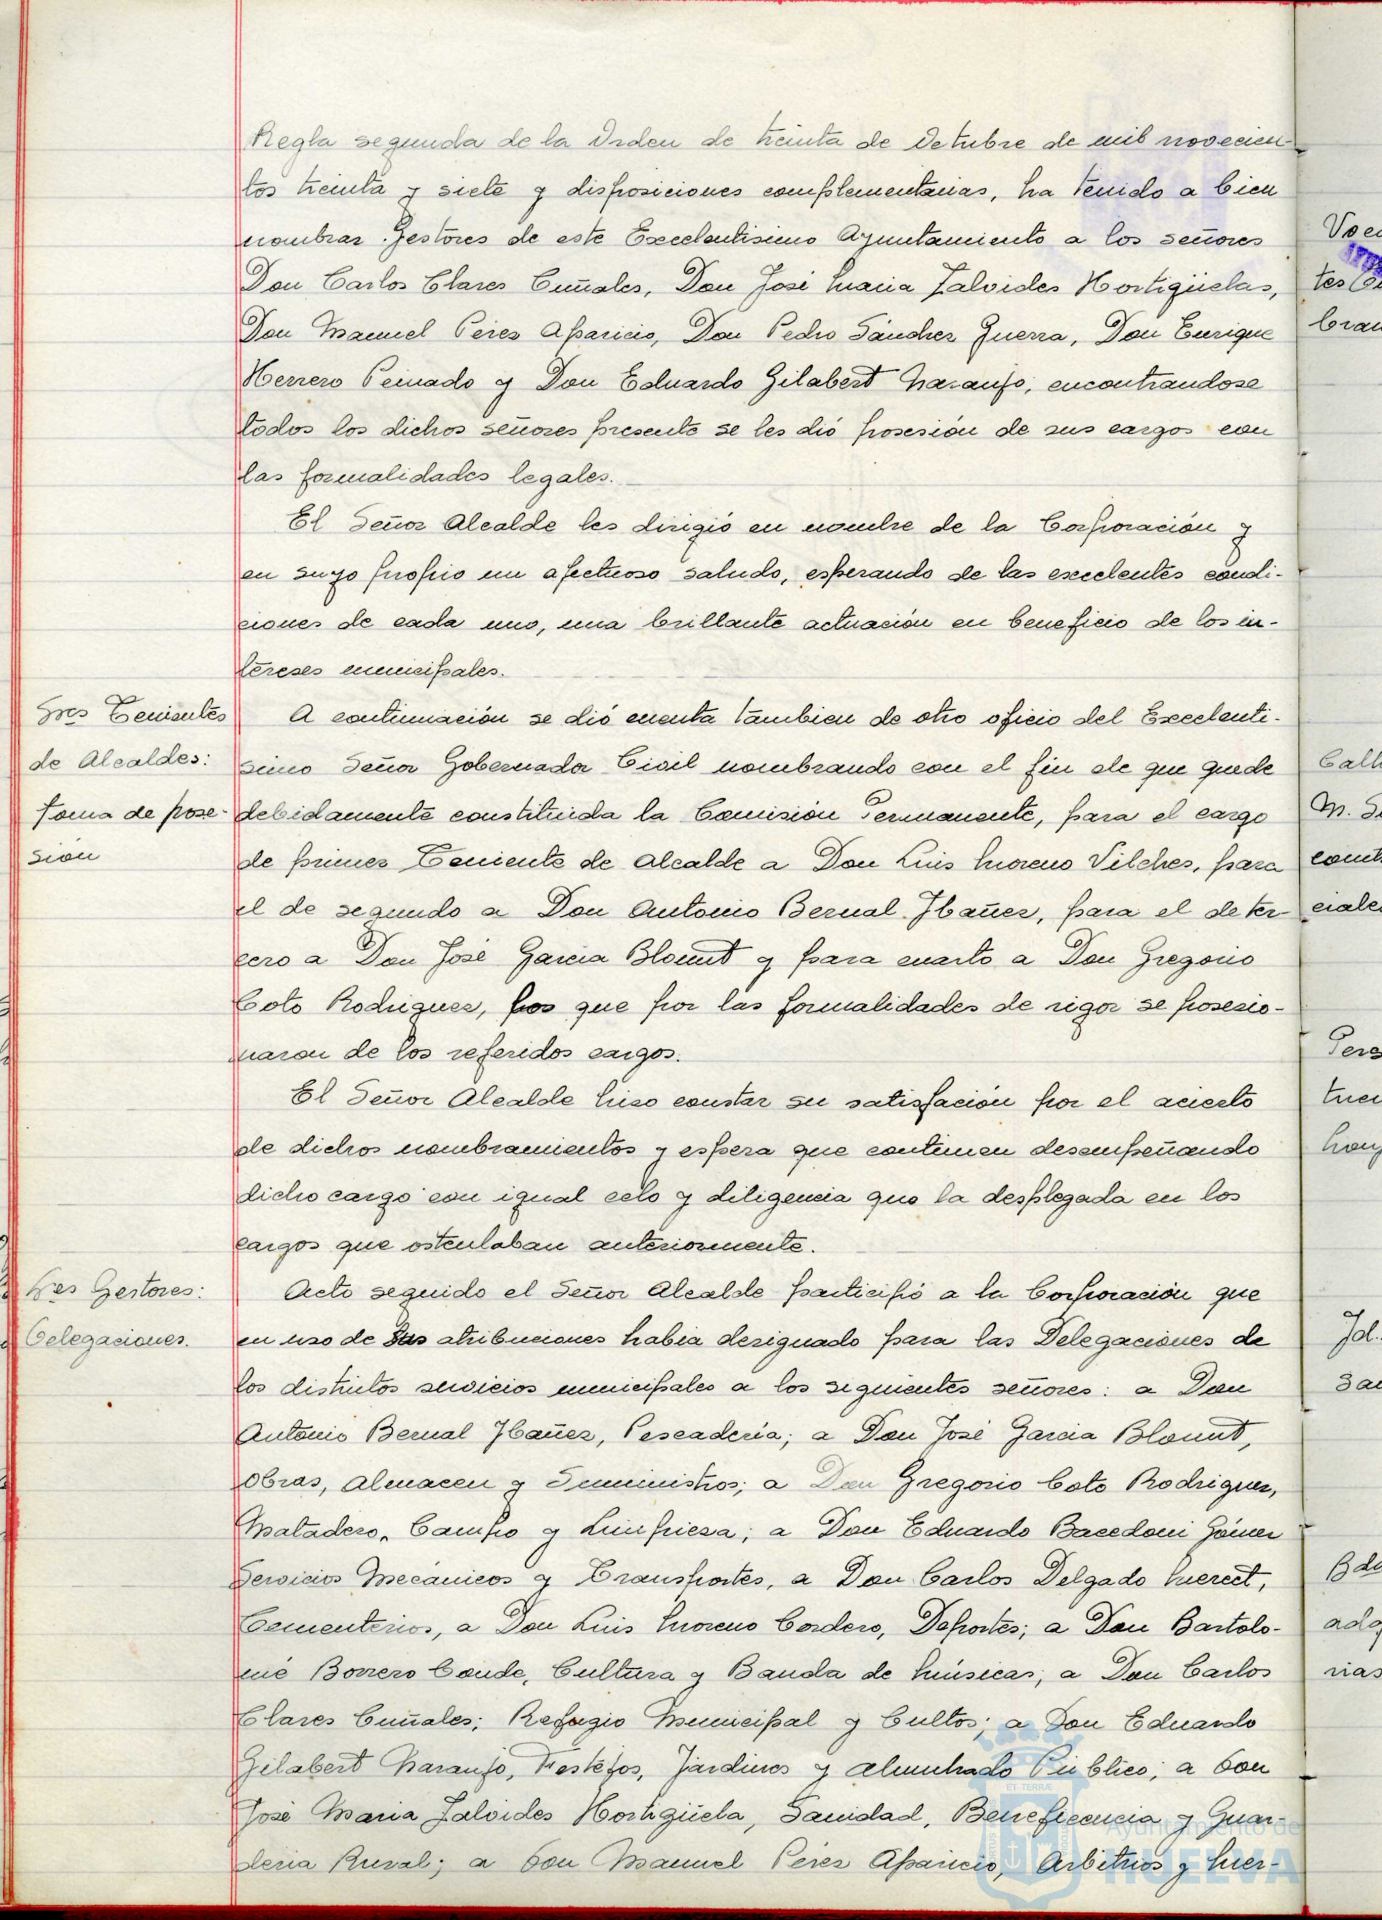 Regla segunda de la Orden de treinta de Octubre de mil novecien-
tos treinta y siete y disposiciones complementarias, ha tenido a bien
nombrar Gestores de este Excelentisimo Ayuntamiento a los señores
Don Carlos Clares Cuñales, Don José Maria Zalvides Hortigüelas,
Don Manuel Pérez Aparicio, Don Pedro Sánchez Guerra, Don Enrique
Herrero Peinado y Don Eduardo Gilabert Naranjo, encontrandose
todos los dichos señores presente se les dió posesión de sus cargos con
las formalidades legales.
El Señor Alcalde les dirigió en nombre de la Corporación y
en suyo propio un afectuoso saludo, esperando de las excelentes condi-
ciones de cada uno, una brillante actuación en beneficio de los in-
tereses municipales.
Sres Tenientes
de Alcaldes:
toma de pose-
sión
A continuación se dió cuenta tambien de otro oficio del Excelenti-
simo Señor Gobernador Civil nombrando con el fin de que quede
debidamente constituida la Comisión Permanente, para el cargo
de primer Teniente de Alcalde a Don Luis Moreno Vilches, para
el de segundo a Don Antonio Bernal Ibañez, para el de ter-
cero a Don José Garcia Blount y para cuarto a Don Gregorio
Coto Rodriguez, los que por las formalidades de rigor se posesio-
naron de los referidos cargos.
El Señor Alcalde hizo constar su satisfación por el acierto
de dichos nombramientos y espera que continuen desempeñando
dicho cargo con igual celo y diligencia que la desplegada en los
cargos que ostentaban anteriormente.
Sres Gestores:
Delegaciones.
Acto seguido el Señor Alcalde participó a la Corporación que
en uso de sus atribuciones habia designado para las Delegaciones de
los distintos servicios municipales a los siguientes señores: a Don
Antonio Bernal Ibañez, Pescadería; a Don José Garcia Blount,
Obras, Almacen y Suministros; a Don Gregorio Coto Rodriguez,
Matadero, Campo y Limpieza; a Don Eduardo Bacedoni Gómez
Servicios Mecánicos y Transportes, a Don Carlos Delgado
Cementerios, a Don Luis Moreno Cordero, Deportes; a Don Bartolo-
mé Borrero Conde, Cultura y Banda de Músicas; a Don Carlos
Clares Cuñales; Refugio Municipal y Cultos; a Don Eduardo
Gilabert Naranjo, Festejos, Jardines y Alumbrado Público; a Don
José Maria Zalvides Hortigüela, Sanidad, Beneficencia y Guar-
deria Rural; a Don Manuel Pérez Aparicio, Arbitrios y Mer-
Ayuntamiento de
HUELVA